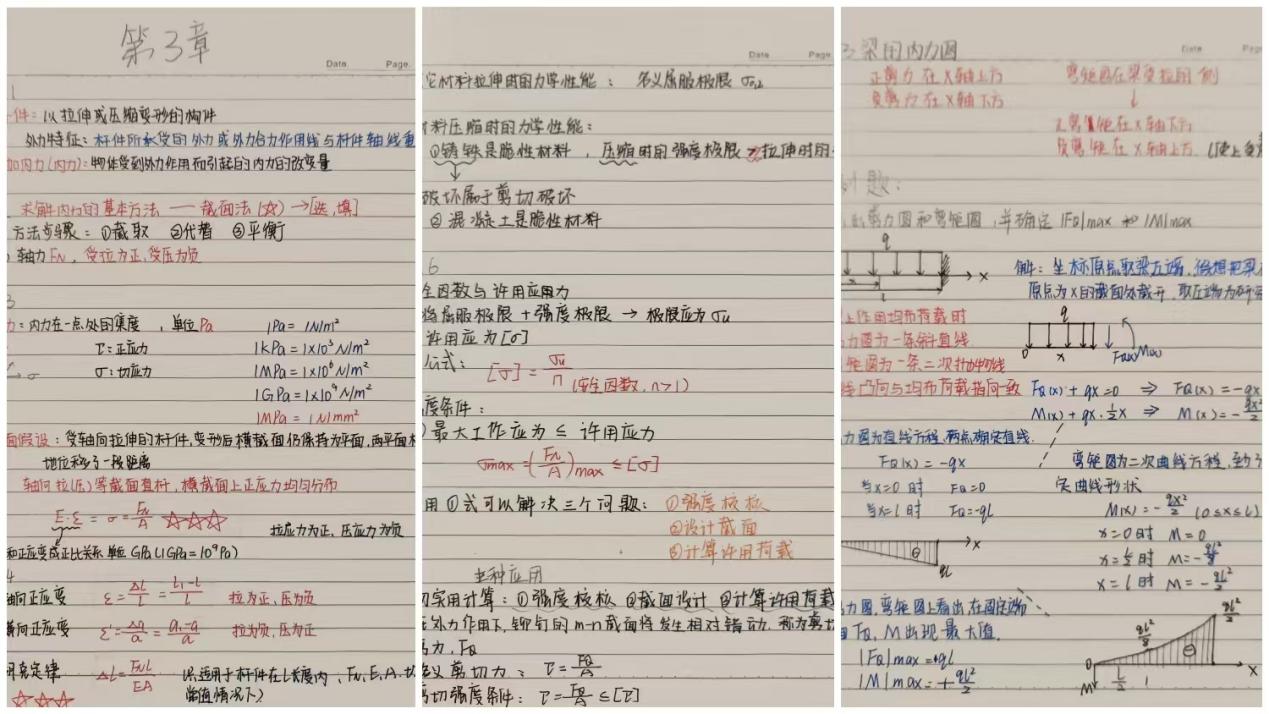 第3章
Date.
Page.
1
件：以拉伸或压缩变形的构件
外力特征：杆件所承受的外力或外力合力作用线与杆件轴线重
加内力(内力)：物体受到外力作用而引起的内力的改变量
求解内力的基本方法 — 截面法(☆) → [选,填]
方法步骤：①截取 ②代替 ③平衡
轴力FN，受拉为正，受压为负
3
力：内力在一点处的集度，单位Pa
1Pa = 1N/m²
τ：正应力
1KPa = 1×10³N/m²
σ：切应力
1MPa = 1×10⁶N/m²
→ σ
1GPa = 1×10⁹N/m²
1MPa = 1N/mm²
面假设：受轴向拉伸的杆件，变形后横截面仍保持为平面，两平面相
地位移了一段距离
轴向拉(压)等截面直杆，横截面上正应力均匀分布
E·ε = σ = FN/A ☆☆☆
拉应力为正，压应力为负
和正应变成正比关系 单位GPa(1GPa=10⁹Pa)
轴向正应变 ε = ΔL/L = (L₁-L)/L 拉为正，压为负
横向正应变 ε' = Δa/a = (a₁-a)/a 拉为负，压为正
胡克定律 ΔL = FNL/EA (只适用于杆件在L长度内，FN、E、A
☆☆☆ 常值情况下)
Date
Page
它材料拉伸时的力学性能： 名义屈服极限 σ0.2
材料压缩时的力学性能：
①铸铁是脆性材料，压缩时的强度极限 > 拉伸时的
破坏属于剪切破坏
②混凝土是脆性材料
6
全因数与许用应力
将屈服极限+强度极限 → 极限应力σu
许用应力[σ]
公式： [σ] = σu/n (安全因数，n>1)
度条件：
最大工作应力 ≤ 许用应力
σmax = (FN/A)max ≤ [σ]
用①式可以解决三个问题： ①强度校核
②设计截面
③计算许用荷载
三种应用
实用计算：①强度校核 ②截面设计 ③计算许用荷载
外力作用下，铆钉的m-n截面将发生相对错动，称为剪切
力，FQ
名义剪切力： τ = FQ/A
剪切强度条件： τ = FQ/A ≤ [τ]
Date
Page
3 梁的内力图
正剪力在X轴上方
弯矩图在梁受拉的一侧
负剪力在X轴下方
↓
正弯矩在X轴下方
负弯矩在X轴上方
计题：
的剪力图和弯矩图，并确定|FQ|max 和 |M|max
q
x
l
解：坐标原点取梁左端，假想把梁
原点为x的截面处截开，取左端为研究
上作用均布荷载时
力图为一条斜直线
弯矩图为一条二次抛物线
线凸向与均布荷载指向一致
q
0
x
FQ(x)
M(x)
FQ(x)+qx=0 ⇒ FQ(x)=-qx
M(x)+qx·½x ⇒ M(x)=-qx²/2
力图为直线方程，两点确定直线.
FQ(x)=-qx
当x=0时 FQ=0
当x=l时 FQ=-ql
弯矩图为二次曲线方程，至少
定曲线形状
M(x)=-qx²/2 (0≤x≤l)
x=0时 M=0
x=l/2时 M=-ql²/8
x=l时 M=-ql²/2
x
⊖
ql
力图，弯矩图上看出，在固定端
FQ，M出现最大值.
|FQ|max=+ql
|M|max=+ql²/2
ql²/2
ql²/8
⊖
0
M
l/2
l
x